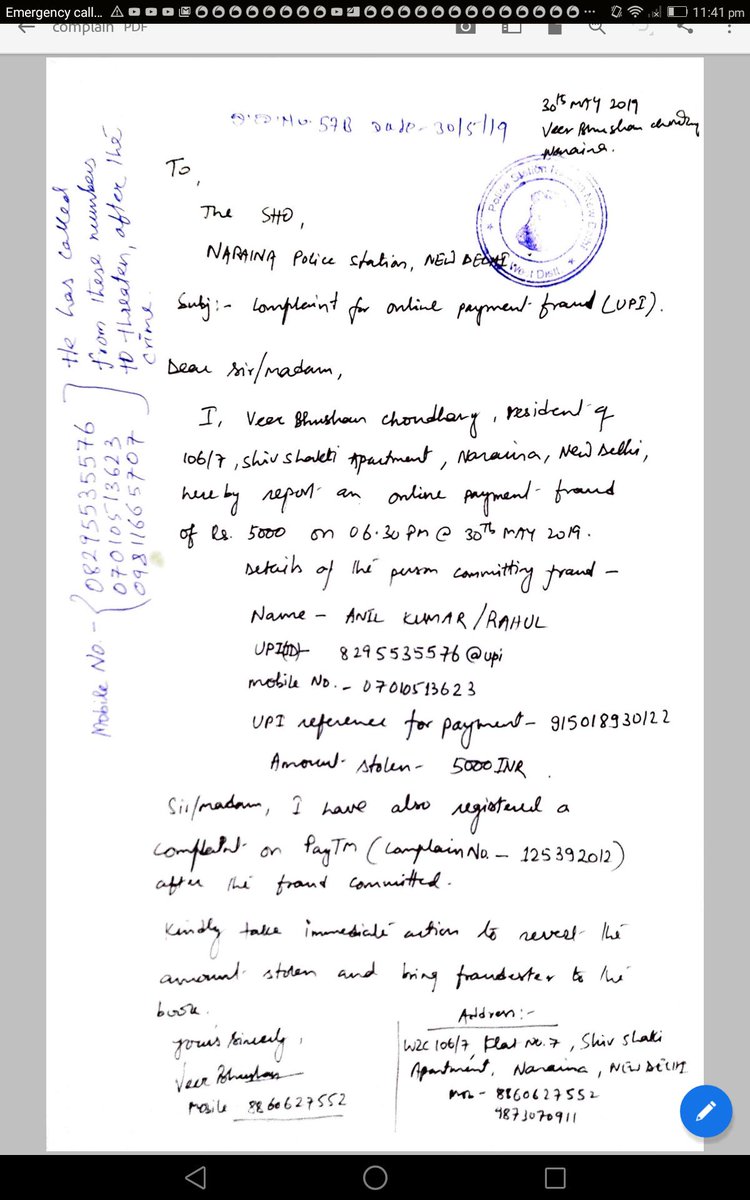 Emergency call...
11:41 pm
complain PDF
30th MAY 2019
Veer Bhushan Choudhary
Naraina.
57B Date- 30/5/19
To,
The SHO,
NARAINA Police Station, NEW DELHI
Police Station New Delhi
West Distt
Subj:- Complaint for online payment fraud (UPI).
Dear Sir/madam,
I, Veer Bhushan Choudhary, resident of
106/7, Shiv Shakti Apartment, Naraina, New Delhi,
hereby report an online payment fraud
of Rs. 5000 on 06.30 PM @ 30th MAY 2019.
Details of the person committing fraud -
Name - ANIL KUMAR/RAHUL
UPI(ID)- 8295535576@upi
Mobile No. - 07010513623
UPI reference for payment - 915018930122
Amount stolen - 5000 INR
Sir/madam, I have also registered a
complaint on PayTM (Complain No. - 125392012)
after the fraud committed.
Kindly take immediate action to revert the
amount stolen and bring fraudester to the
book.
Yours Sincerely,
Veer Bhushan
Mobile 8860627552
Address:-
WZC 106/7, Flat No. 7, Shiv Shakti
Apartment, Naraina, NEW DELHI
Mob - 8860627552
9873070911
Mobile No. - { 08295535576
07010513623
09811665707
} He has called
from these numbers
to threaten, after the
crime.